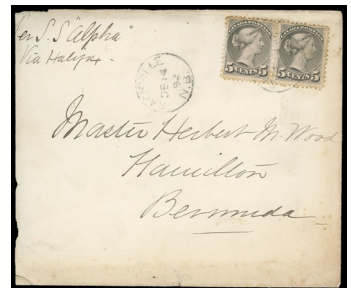 Per S.S "Alpha"
Via Halifax.
5 CENTS 5
5 CENTS 5
Master Herbert M. Wood
Hamilton
Bermuda